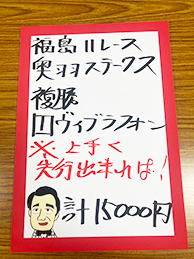 福島11レース
奥羽ステークス
複勝
1ヴィブラフォン
※上手く
先行出来れば!
計15000円